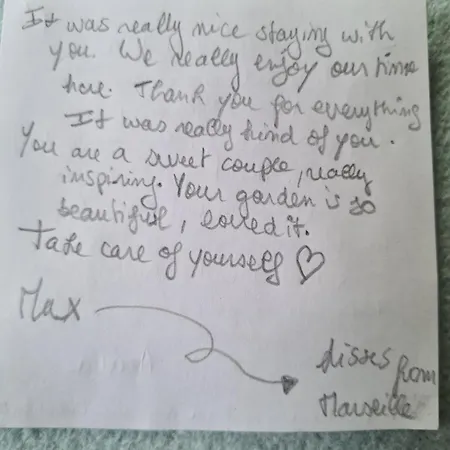 It was really nice staying with
you. We really enjoy our time
here. Thank you for everything
It was really kind of you.
You are a sweet couple, really
inspiring. Your garden is so
beautiful, loved it.
Take care of yourself ♡
Max
from
Marseille